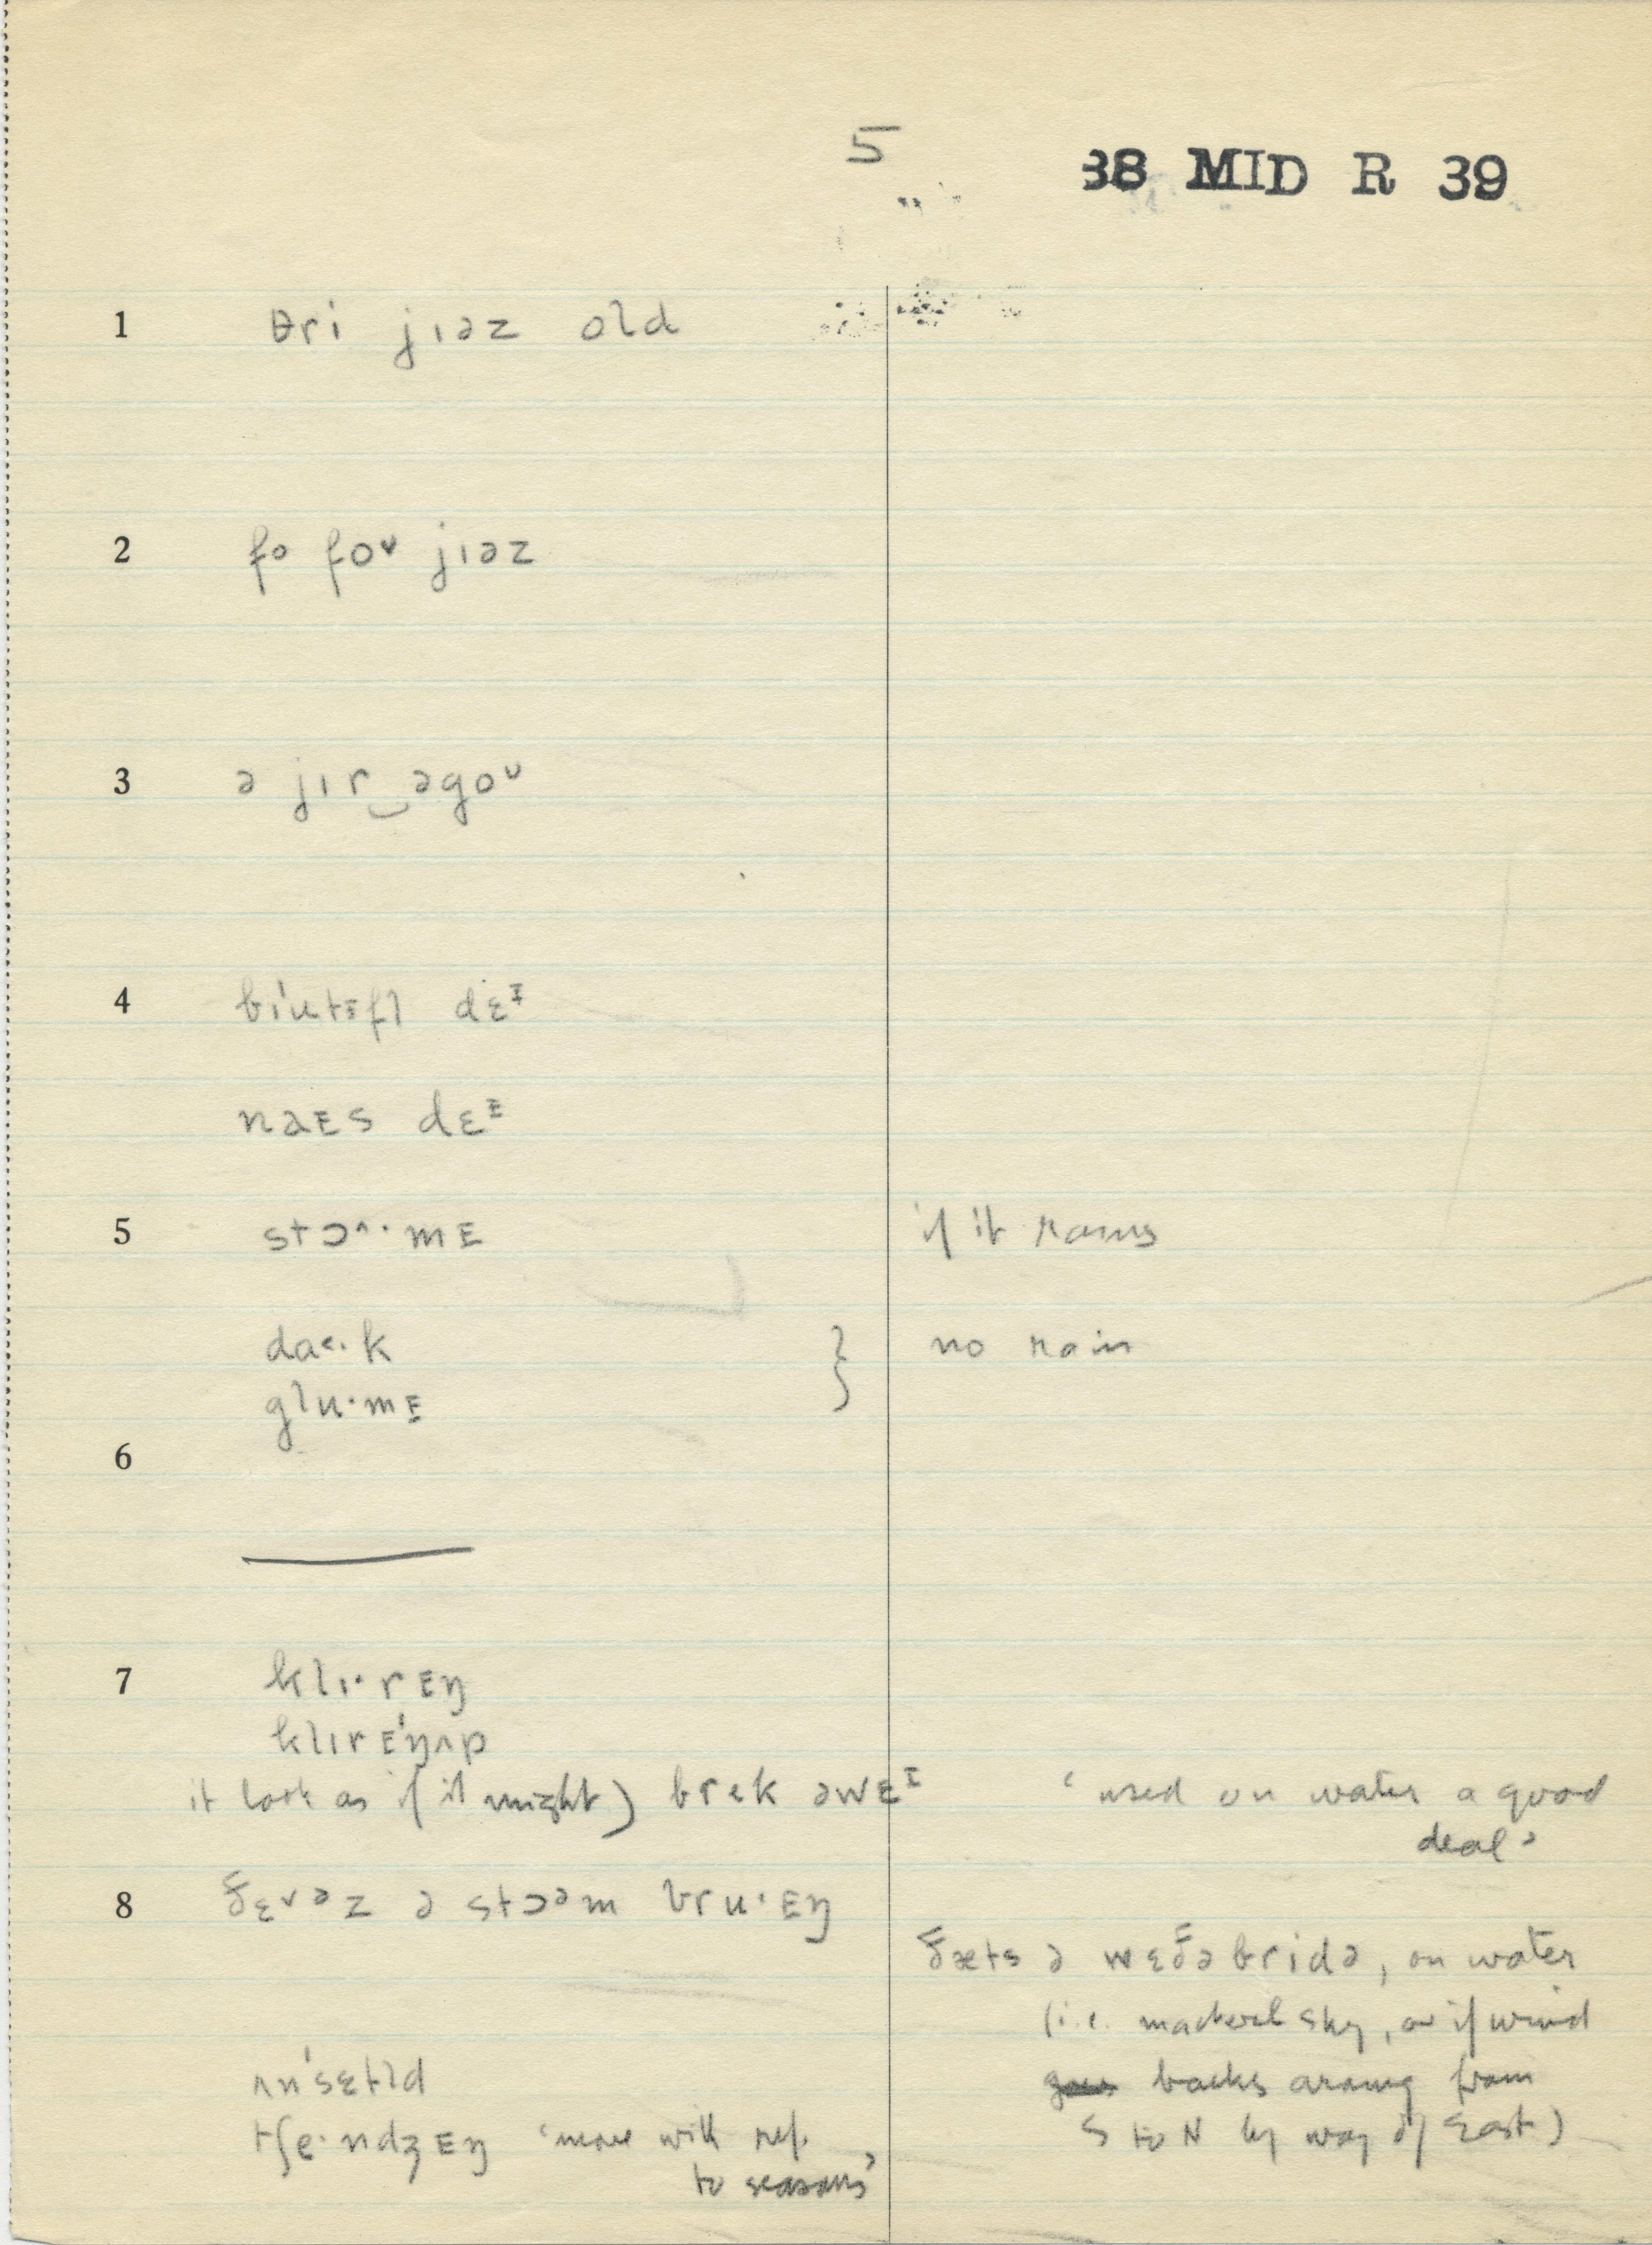 5
38 MID R 39
1 θri jɪəz old
2 fo foᵛ jɪəz
3 ə jɪr‿əgoᶸ
4 bi'utᴇfl dɛᶦ
naᴇs dɛᴱ
5 stɔ^·mᴇ if it rains
da<·k } no rain
glu·mᴇ
6
7 klɪ·rᴇŋ
klɪrᴇ'ŋʌp
it look as if it might) brek əwɛᶦ ‘used on water a good
deal’
8 ðɛᵛəz ə stɔᵊm bru·ᴇŋ
ðæts ə wɛðəbridə, on water
(i.e. mackerel sky, or if wind
goes backs around from
S to N by way of East)
ʌn'sɛtld
tʃe·ndʒᴇŋ ‘more with ref.
to seasons’